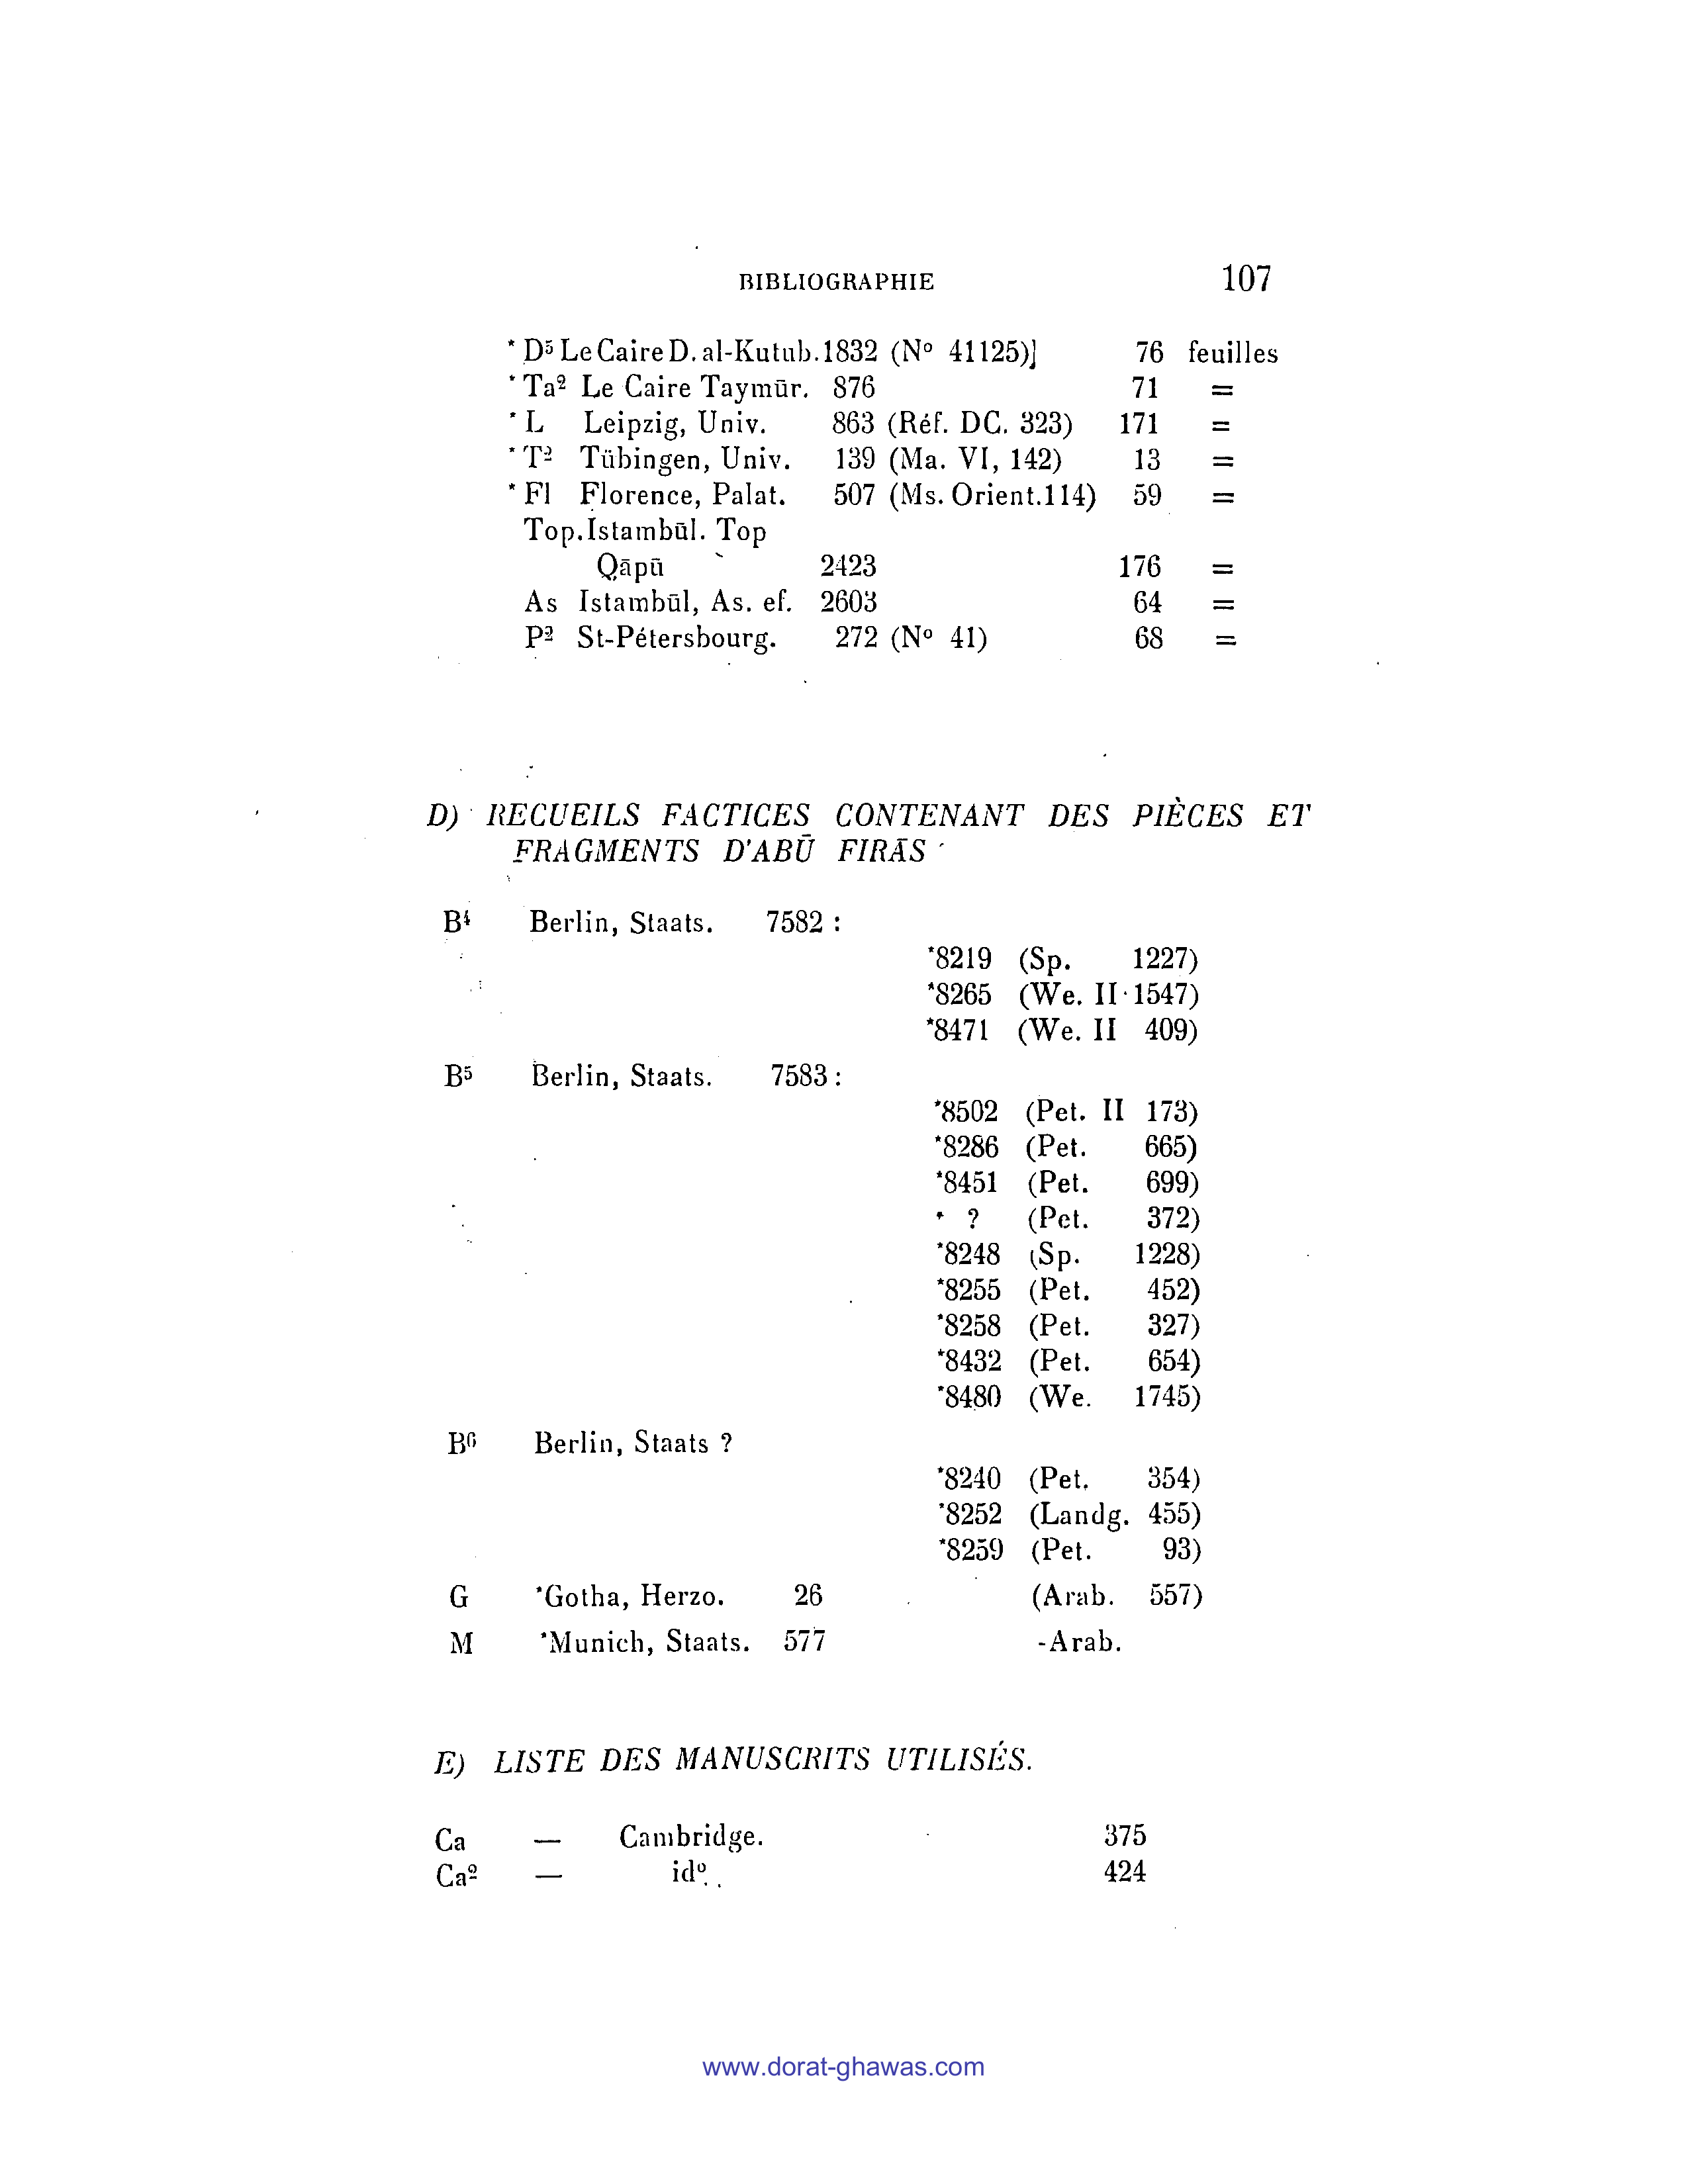 BIBLIOGRAPHIE 107
* D⁵ Le Caire D. al-Kutub. 1832 (Nº 41125)] 76 feuilles
* Ta² Le Caire Taymūr. 876 71 =
* L Leipzig, Univ. 863 (Réf. DC. 323) 171 =
* T² Tübingen, Univ. 139 (Ma. VI, 142) 13 =
* Fl Florence, Palat. 507 (Ms. Orient.114) 59 =
Top. Istambūl. Top
Qāpū 2423 176 =
As Istambūl, As. ef. 2603 64 =
P² St-Pétersbourg. 272 (Nº 41) 68 =
D) RECUEILS FACTICES CONTENANT DES PIÈCES ET
FRAGMENTS D'ABŪ FIRĀS
B⁴ Berlin, Staats. 7582 :
*8219 (Sp. 1227)
*8265 (We. II 1547)
*8471 (We. II 409)
B⁵ Berlin, Staats. 7583 :
*8502 (Pet. II 173)
*8286 (Pet. 665)
*8451 (Pet. 699)
* ? (Pet. 372)
*8248 (Sp. 1228)
*8255 (Pet. 452)
*8258 (Pet. 327)
*8432 (Pet. 654)
*8480 (We. 1745)
B⁶ Berlin, Staats ?
*8240 (Pet. 354)
*8252 (Landg. 455)
*8259 (Pet. 93)
G *Gotha, Herzo. 26 (Arab. 557)
M *Munich, Staats. 577 -Arab.
E) LISTE DES MANUSCRITS UTILISÉS.
Ca — Cambridge. 375
Ca² — idº. 424
www.dorat-ghawas.com